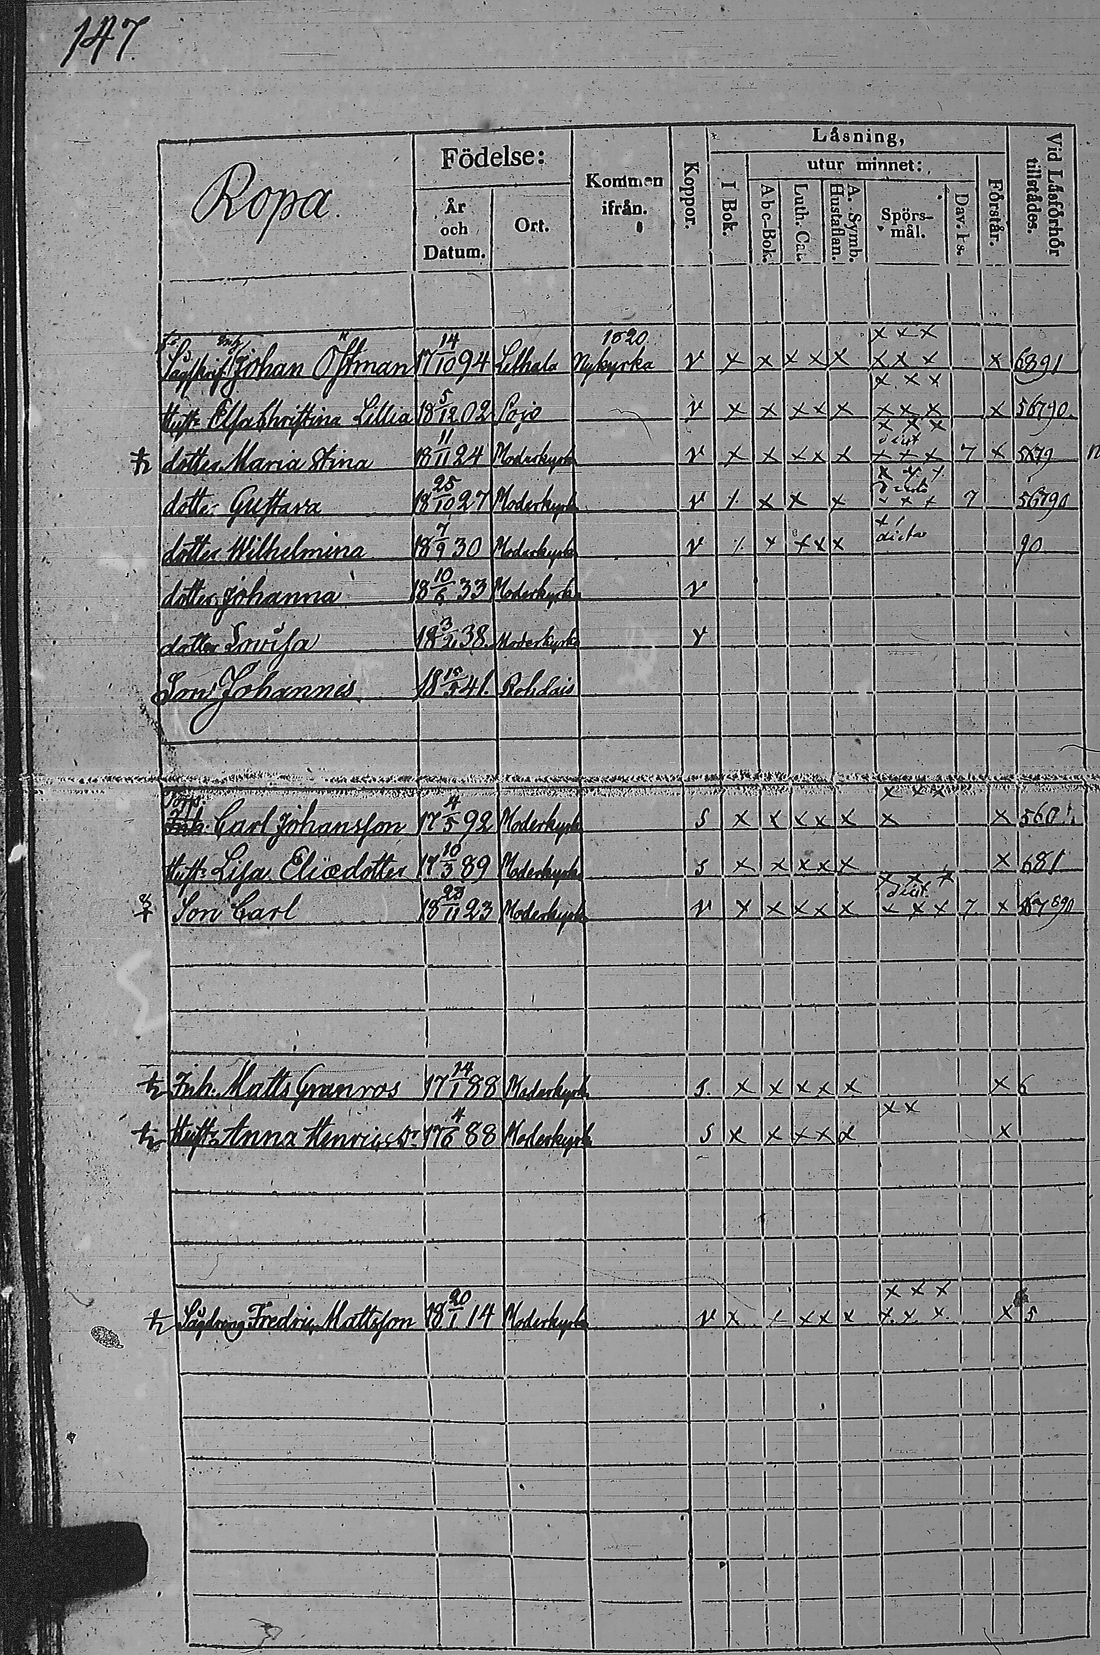 147.
Ropa.
Födelse:
År och Datum.
Ort.
Kommen ifrån.
Koppor.
Låsning,
I Bok.
utur minnet:
Abc-Bok.
Luth. Cat.
A. Symb. Hustaflan.
Spörsmål.
Dav. ps.
Förstår.
Vid Låsförhör tillstådes.
1820 x x x
Johan Östman 17 14/10 94 Lethala Nykyrka v x x x x x x x x x 6891
x x x
Hust: Elsa Christina Lillia 18 5/12 02 Pojo v x x x x x x x x x 56790
x x x
dotter Maria Stina 18 11/11 24 Moderkyrk v x x x x x x x x 7 x 5679
x x x
dotter Gustava 18 25/10 27 Moderkyrk v x x x x x x 7 56790
dotter Wilhelmina 18 7/9 30 Moderkyrk v x x x x 90
dotter Johanna 18 10/6 33 Moderkyrk v
dotter Lovisa 18 3/2 38. Moderkyrka v
Son Johannes 18 15/5 41.
Torp. x x x
Inh: Carl Johansson 17 4/5 92 Moderkyrk s x x x x x x x 560
Hust: Lisa Eliædotter 17 10/3 89 Moderkyrk s x x x x x x 681
x x x
Son Carl 18 28/11 23 Moderkyrk v x x x x x x x x 7. x
Inh: Matts Granroos 17 14/1 88 Moderkyrk s. x x x x x x 6
x x
Hust: Anna Henricsdr 17 4/6 88 Moderkyrk s x x x x x x
x x x
Sågdräng Fredric Mattsson 18 20/1 14 Moderkyrk v x x x x x x x x x 5